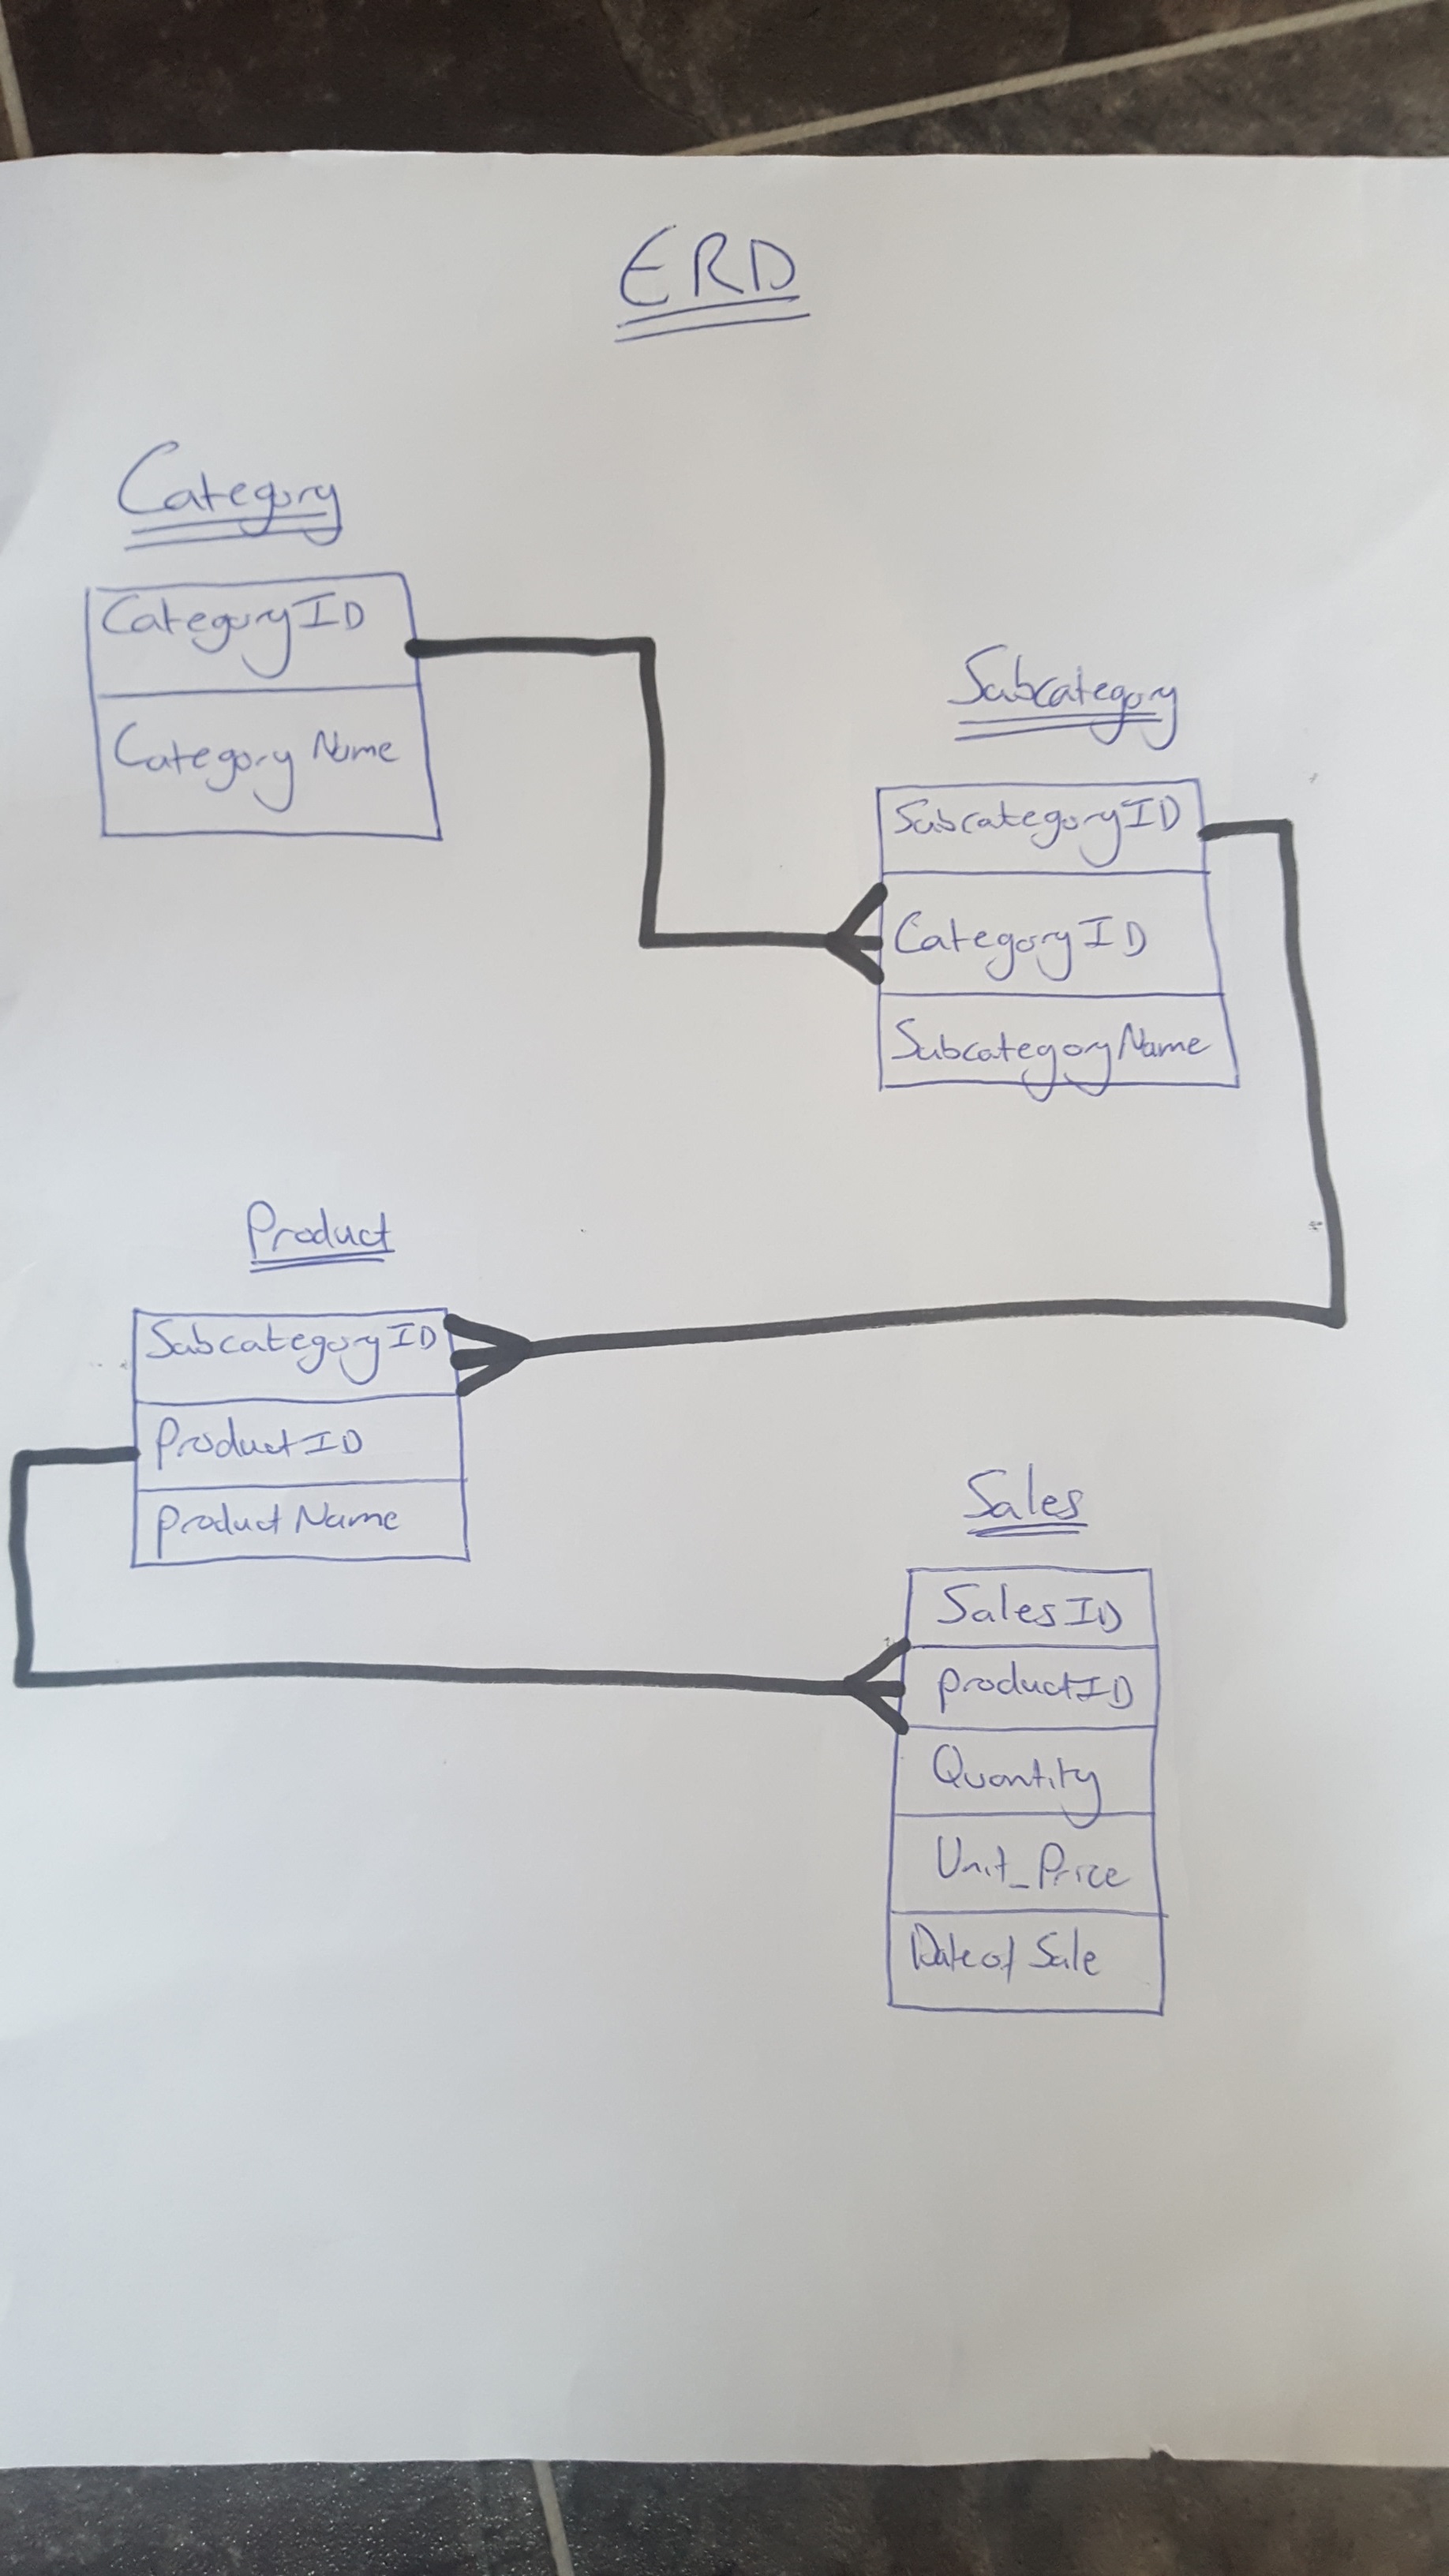 ERD
Category
CategoryID
Category Name
Subcategory
SubcategoryID
CategoryID
SubcategoryName
Product
SubcategoryID
ProductID
product Name
Sales
SalesID
productID
Quantity
Unit_Price
Date of Sale